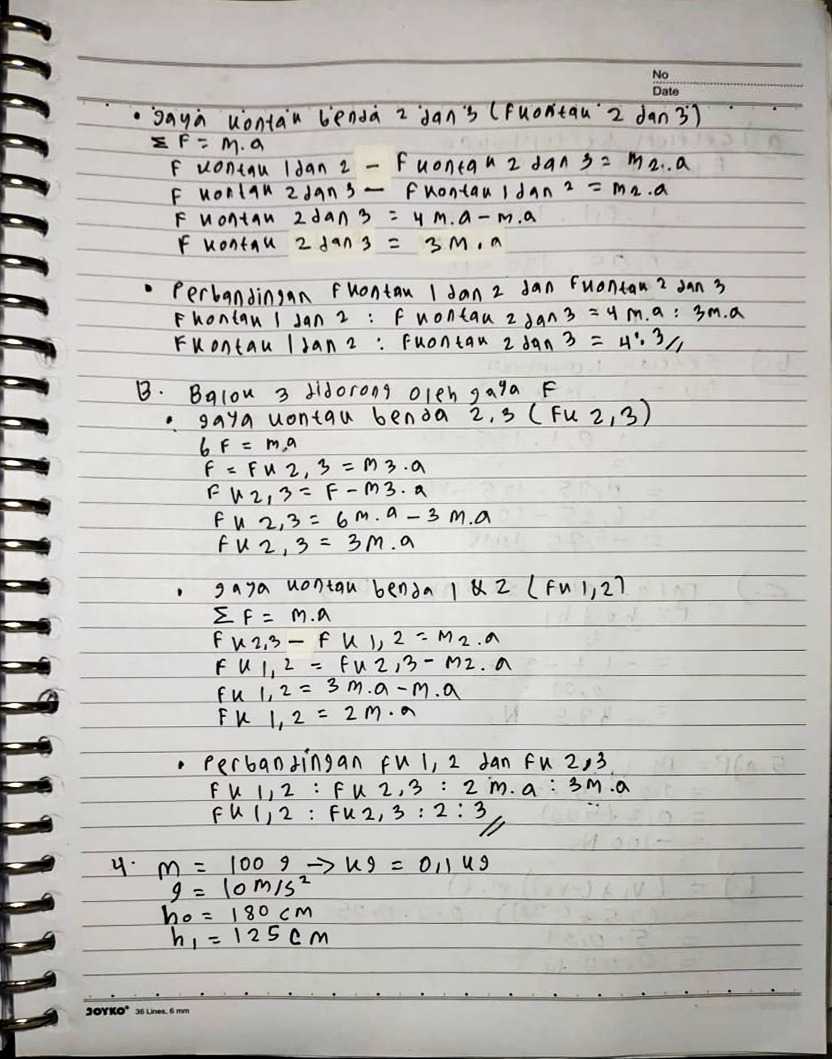 No
Date
• gaya kontak benda 2 dan 3 (Fkontak 2 dan 3)
Σ F = m.a
F kontak 1 dan 2 - F kontak 2 dan 3 = m2..a
F kontak 2 dan 3 - F kontak 1 dan 2 = m2.a
F kontak 2 dan 3 = 4 m.a - m.a
F kontak 2 dan 3 = 3 m.a
• Perbandingan Fkontak 1 dan 2 dan Fkontak 2 dan 3
F kontak 1 dan 2 : F kontak 2 dan 3 = 4 m.a : 3m.a
F kontak 1 dan 2 : Fkontak 2 dan 3 = 4 : 3 //
B. Balok 3 didorong oleh gaya F
• gaya kontak benda 2,3 (Fk 2,3)
6 F = m.a
F = Fk 2,3 = m3.a
Fk 2,3 = F - m3.a
Fk 2,3 = 6 m.a - 3 m.a
Fk 2,3 = 3m.a
• gaya kontak benda 1 & 2 (Fk 1,2)
Σ F = m.a
Fk 2,3 - Fk 1,2 = m2.a
Fk 1,2 = Fk 2,3 - m2.a
Fk 1,2 = 3 m.a - m.a
Fk 1,2 = 2m.a
• Perbandingan Fk 1,2 dan Fk 2,3
Fk 1,2 : Fk 2,3 : 2 m.a : 3m.a
Fk 1,2 : Fk 2,3 : 2 : 3 //
4. m = 100 g → kg = 0,1 kg
g = 10 m/s²
h0 = 180 cm
h1 = 125 cm
JOYKO® 36 Lines, 6 mm